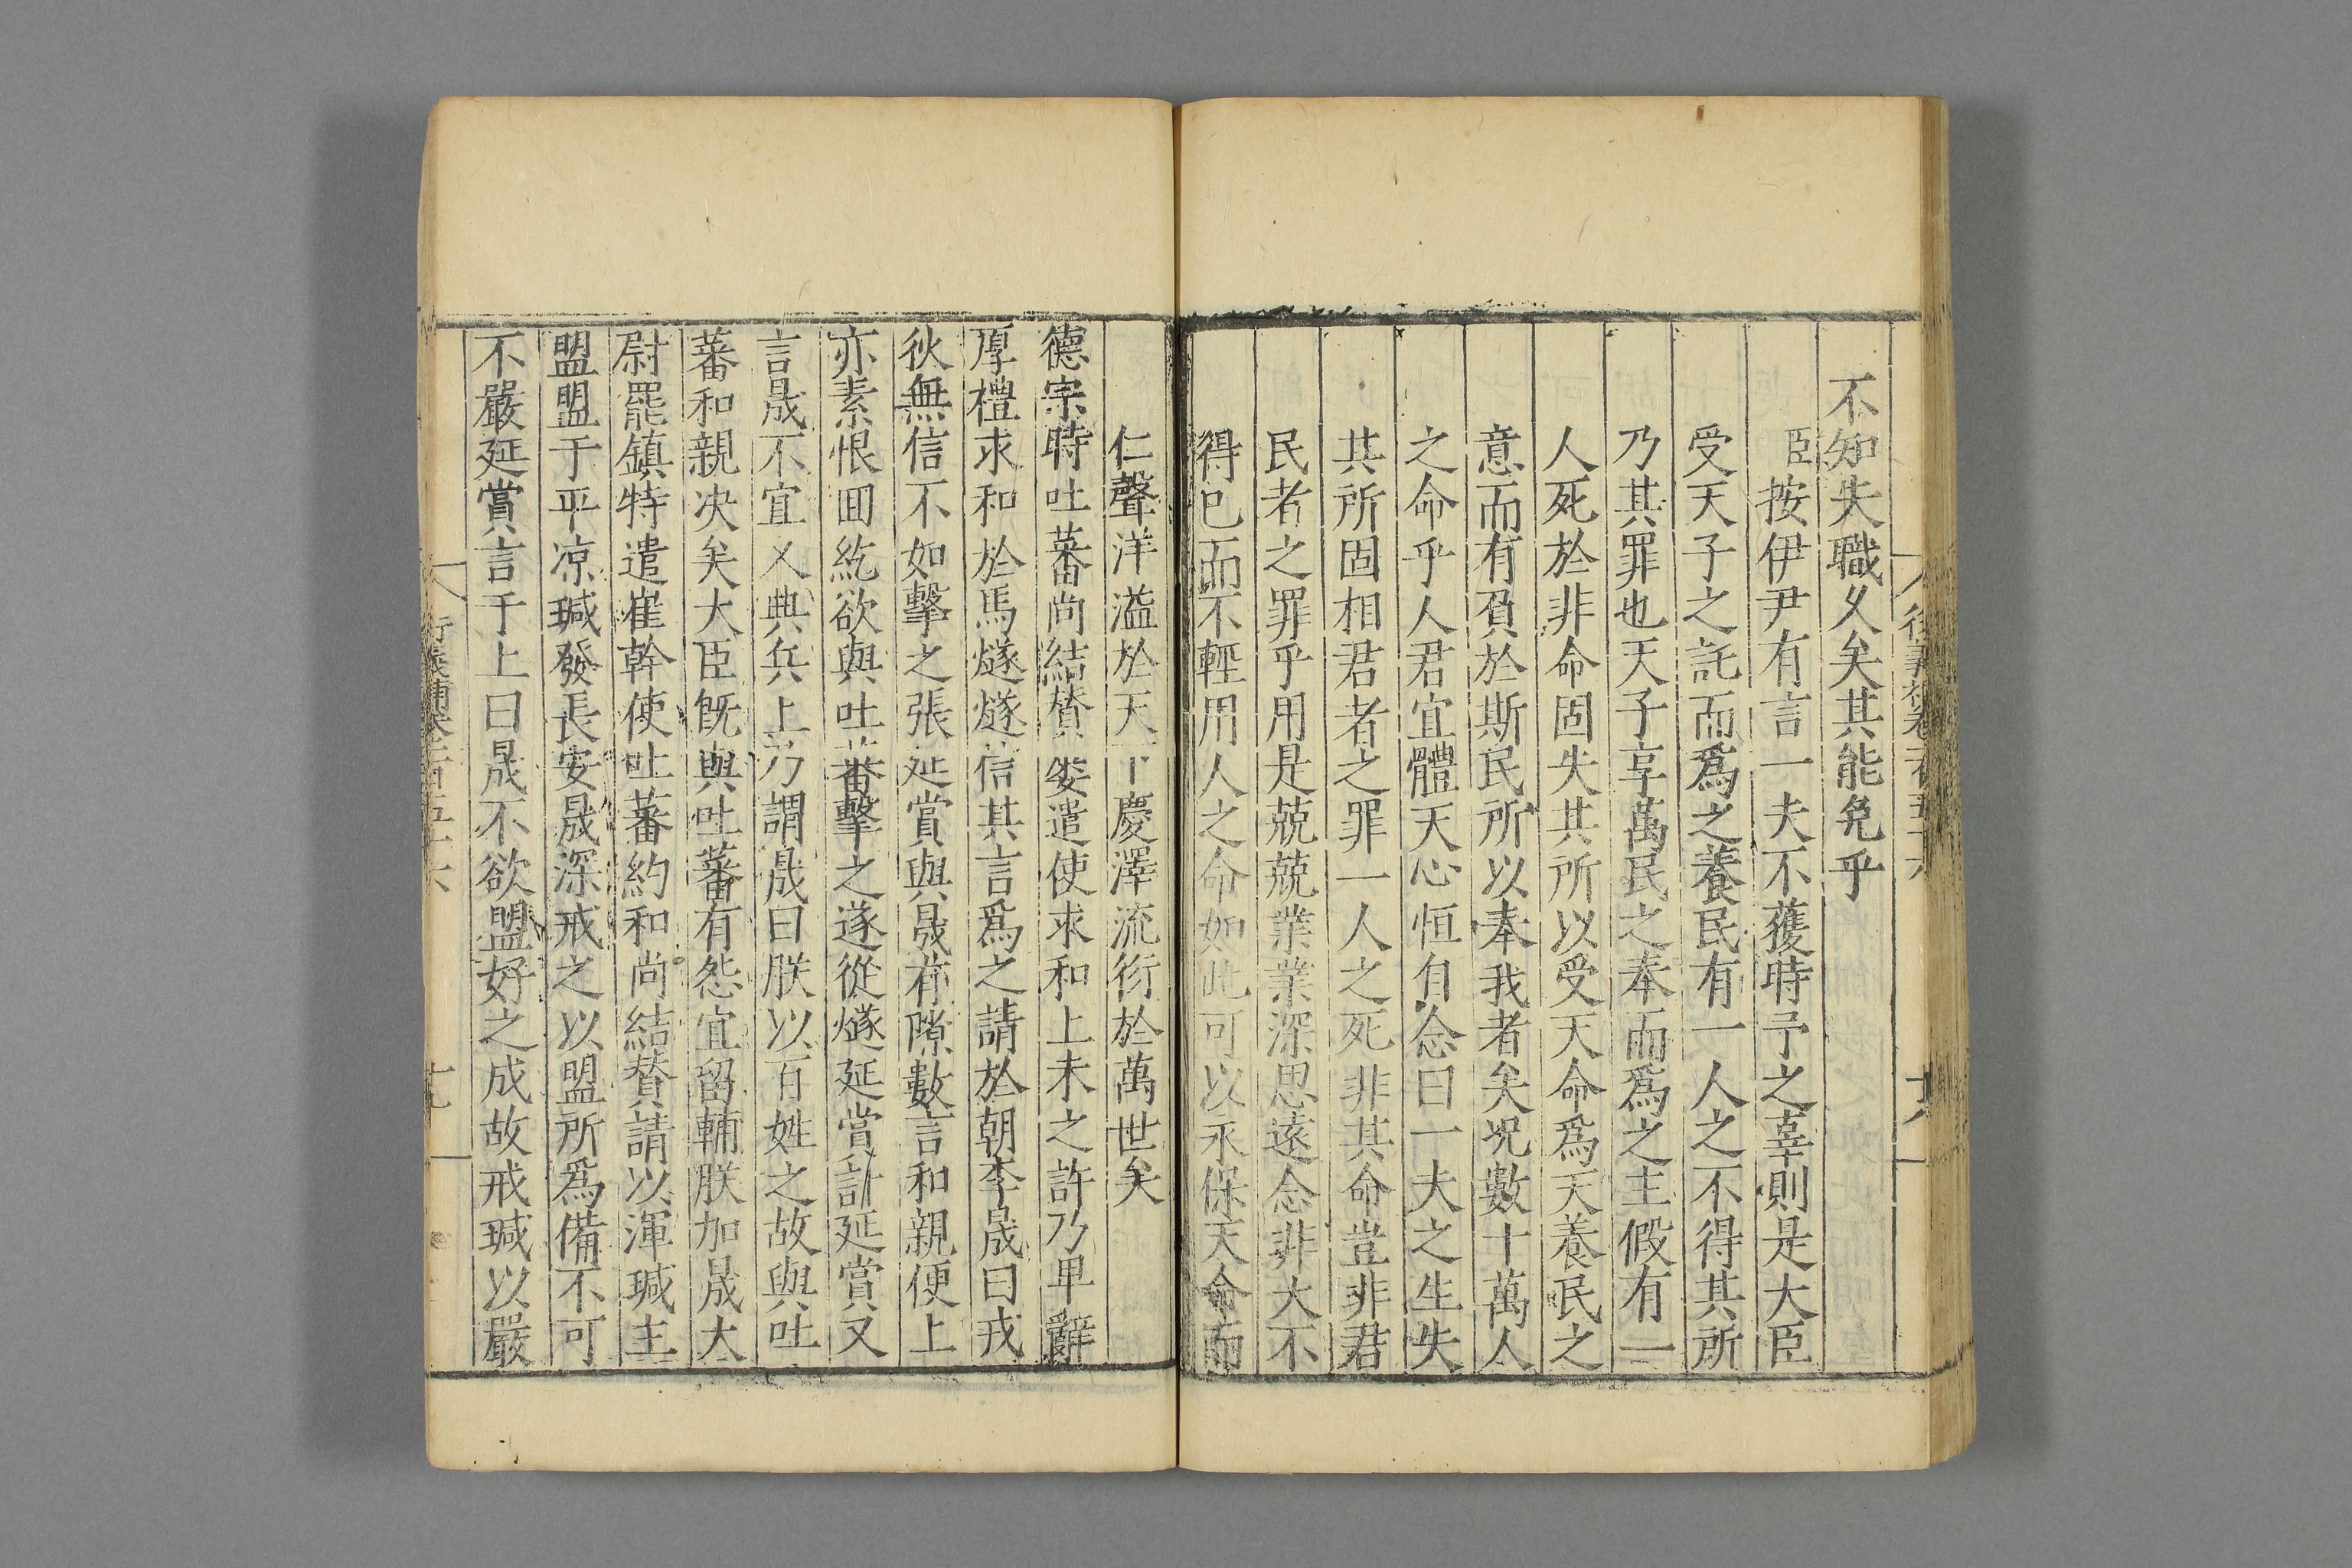 不知失職乆矣其能免乎
臣按伊尹有言一夫不獲時予之辜則是大臣
受天子之託而爲之養民有一人之不得其所
乃其罪也天子享萬民之奉而爲之主假有一
人死於非命固失其所以受天命爲天養民之
意而有負於斯民所以奉我者矣况數十萬人
之命乎人君宜體天心恒自念曰一夫之生失
其所固相君者之罪一人之死非其命豈非君
民者之罪乎用是兢兢業業深思遠念非大不
得已而不輕用人之命如此可以永保天命而
仁聲洋溢於天下慶澤流衍於萬世矣
德宗時吐蕃尚結贊婁遣使求和上未之許乃卑辭
厚禮求和於馬燧燧信其言爲之請於朝李晟曰戎
狄無信不如擊之張延賞與晟有隙數言和親便上
亦素恨囬紇欲與吐蕃擊之遂從燧延賞計延賞又
言晟不宜乆典兵上乃謂晟曰朕以百姓之故與吐
蕃和親决矣大臣既與吐蕃有怨宜留輔朕加晟太
尉罷鎮特遣崔幹使吐蕃約和尚結贊請以渾瑊主
盟盟于平凉瑊發長安晟深戒之以盟所爲備不可
不嚴延賞言于上曰晟不欲盟好之成故戒瑊以嚴
衍義補卷一百五十六
十九